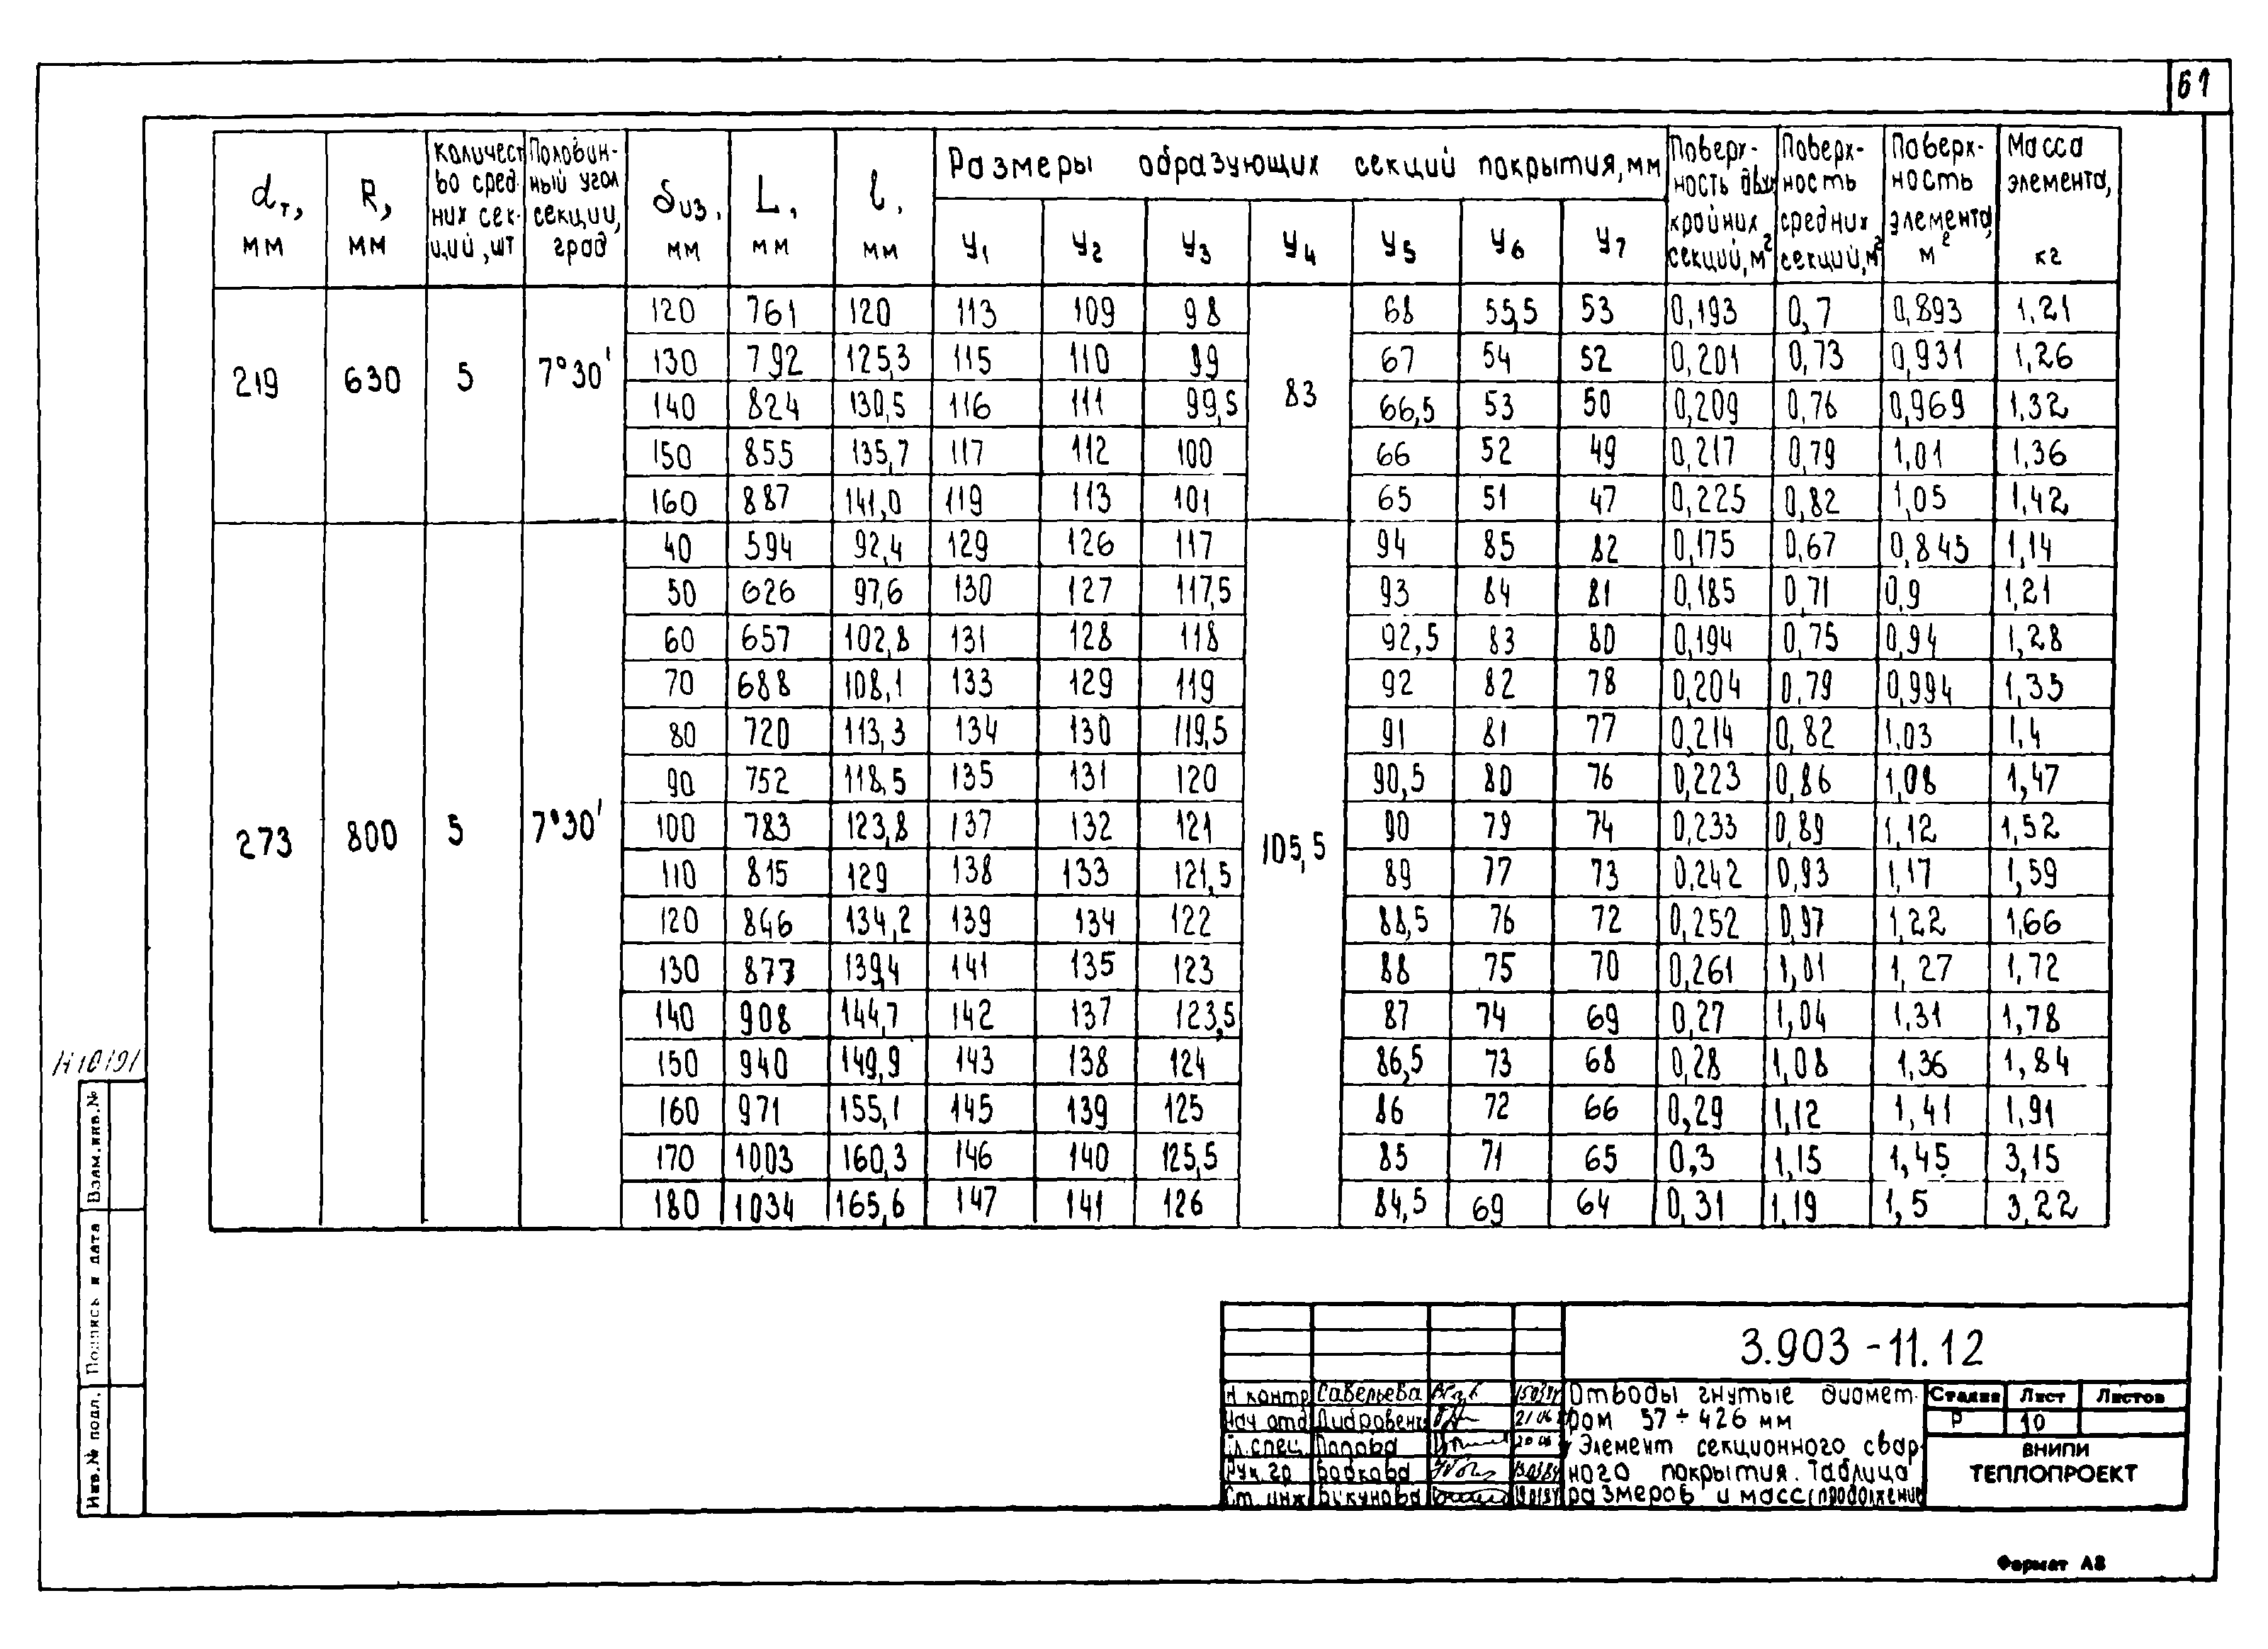 61
dт, мм | R, мм | Количест во сред- них сек- ций, шт | Половин- ный угол секции, град | δиз, мм | L, мм | l, мм | Размеры образующих секций покрытия, мм | Поверх- ность двух крайних секций, м² | Поверх- ность средних секций, м² | Поверх- ность элемента, м² | Масса элемента, кг
У1 | У2 | У3 | У4 | У5 | У6 | У7
219 | 630 | 5 | 7°30' | 120 | 761 | 120 | 113 | 109 | 98 | 83 | 68 | 55,5 | 53 | 0,193 | 0,7 | 0,893 | 1,21
130 | 792 | 125,3 | 115 | 110 | 99 | 67 | 54 | 52 | 0,201 | 0,73 | 0,931 | 1,26
140 | 824 | 130,5 | 116 | 111 | 99,5 | 66,5 | 53 | 50 | 0,209 | 0,76 | 0,969 | 1,32
150 | 855 | 135,7 | 117 | 112 | 100 | 66 | 52 | 49 | 0,217 | 0,79 | 1,01 | 1,36
160 | 887 | 141,0 | 119 | 113 | 101 | 65 | 51 | 47 | 0,225 | 0,82 | 1,05 | 1,42
273 | 800 | 5 | 7°30' | 40 | 594 | 92,4 | 129 | 126 | 117 | 105,5 | 94 | 85 | 82 | 0,175 | 0,67 | 0,845 | 1,14
50 | 626 | 97,6 | 130 | 127 | 117,5 | 93 | 84 | 81 | 0,185 | 0,71 | 0,9 | 1,21
60 | 657 | 102,8 | 131 | 128 | 118 | 92,5 | 83 | 80 | 0,194 | 0,75 | 0,94 | 1,28
70 | 688 | 108,1 | 133 | 129 | 119 | 92 | 82 | 78 | 0,204 | 0,79 | 0,994 | 1,35
80 | 720 | 113,3 | 134 | 130 | 119,5 | 91 | 81 | 77 | 0,214 | 0,82 | 1,03 | 1,4
90 | 752 | 118,5 | 135 | 131 | 120 | 90,5 | 80 | 76 | 0,223 | 0,86 | 1,08 | 1,47
100 | 783 | 123,8 | 137 | 132 | 121 | 90 | 79 | 74 | 0,233 | 0,89 | 1,12 | 1,52
110 | 815 | 129 | 138 | 133 | 121,5 | 89 | 77 | 73 | 0,242 | 0,93 | 1,17 | 1,59
120 | 846 | 134,2 | 139 | 134 | 122 | 88,5 | 76 | 72 | 0,252 | 0,97 | 1,22 | 1,66
130 | 877 | 139,4 | 141 | 135 | 123 | 88 | 75 | 70 | 0,261 | 1,01 | 1,27 | 1,72
140 | 908 | 144,7 | 142 | 137 | 123,5 | 87 | 74 | 69 | 0,27 | 1,04 | 1,31 | 1,78
150 | 940 | 149,9 | 143 | 138 | 124 | 86,5 | 73 | 68 | 0,28 | 1,08 | 1,36 | 1,84
160 | 971 | 155,1 | 145 | 139 | 125 | 86 | 72 | 66 | 0,29 | 1,12 | 1,41 | 1,91
170 | 1003 | 160,3 | 146 | 140 | 125,5 | 85 | 71 | 65 | 0,3 | 1,15 | 1,45 | 3,15
180 | 1034 | 165,6 | 147 | 141 | 126 | 84,5 | 69 | 64 | 0,31 | 1,19 | 1,5 | 3,22
Н10191
Взам.инв.№
Подпись и дата
Инв.№ подл.
3.903-11.12
Н контр Савельева
Нач отд
Гл.спец. Попова
Рук.гр Бобкова
Ст. инж Бикунова
Отводы гнутые диамет-
ром 57÷426 мм
Элемент секционного свар-
ного покрытия. Таблица
размеров и масс (продолжение
Стадия Лист Листов
Р 10
ВНИПИ
ТЕПЛОПРОЕКТ
Формат А3